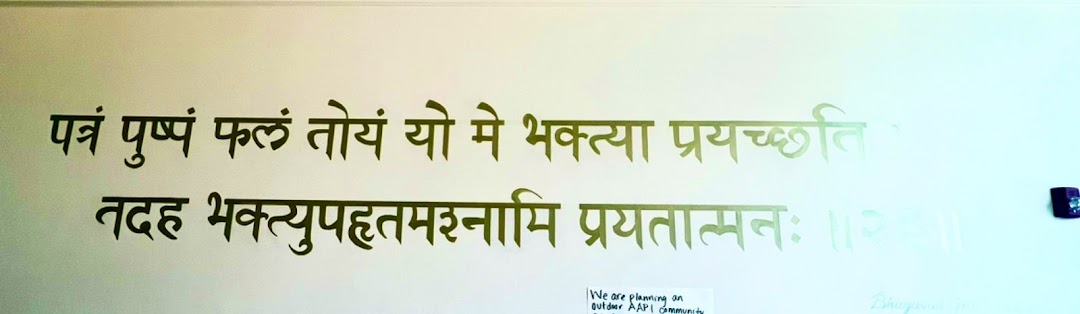 पत्रं पुष्पं फलं तोयं यो मे भक्त्या प्रयच्छति
तदह भक्त्युपहृतमश्नामि प्रयतात्मनः ॥२६॥
We are planning an
outdoor AAPI community
Bhagavad